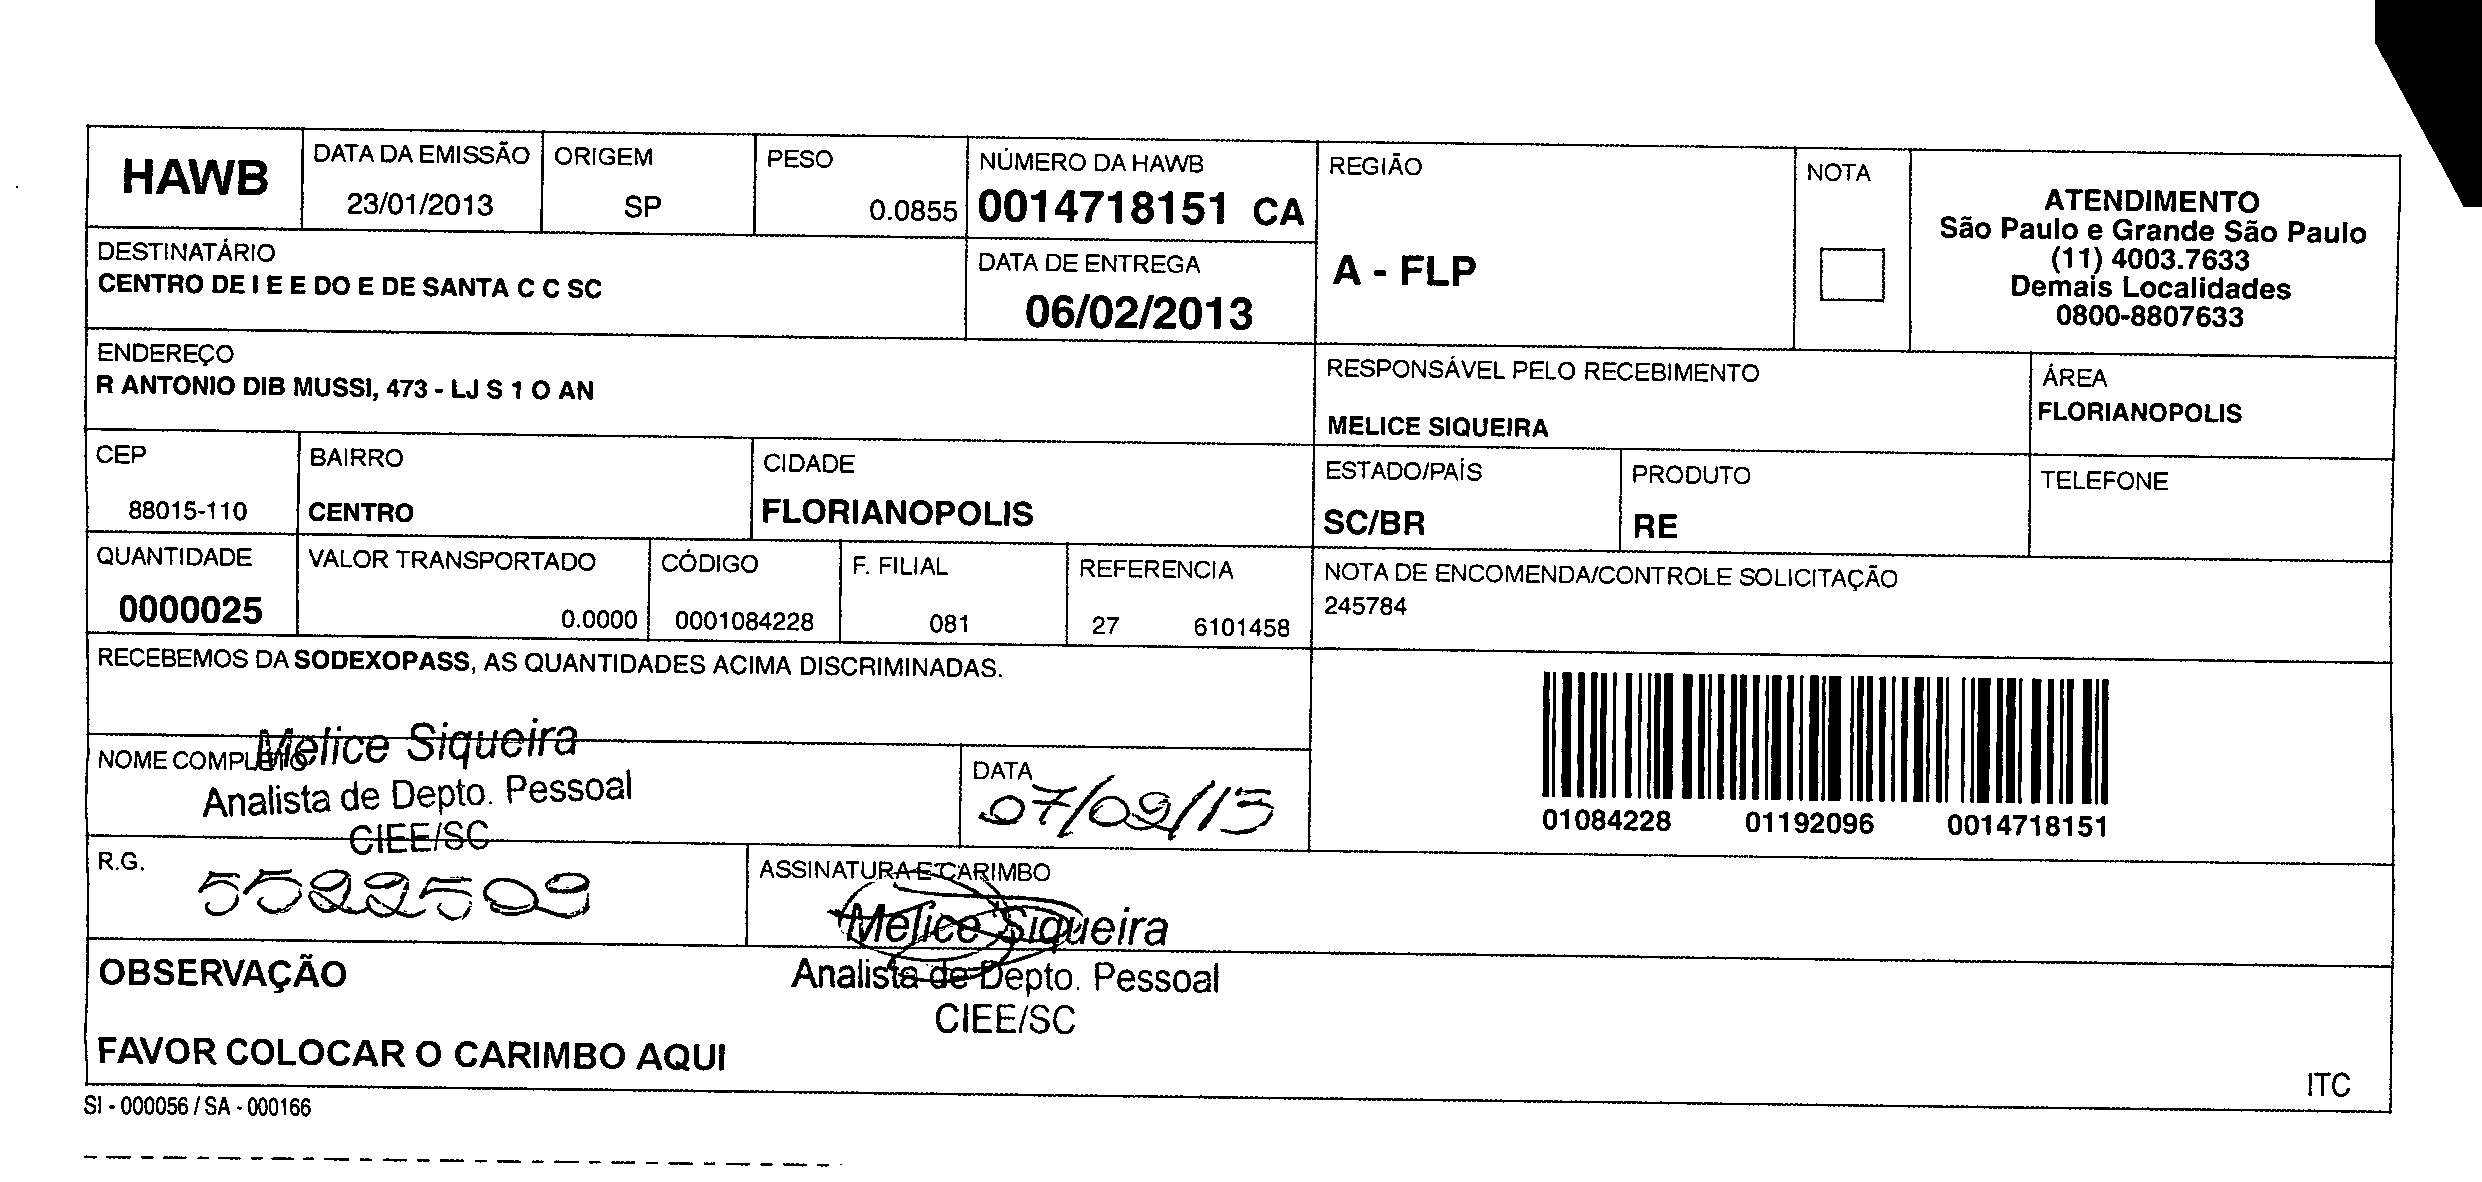 HAWB
DATA DA EMISSÃO
23/01/2013
ORIGEM
SP
PESO
0.0855
NÚMERO DA HAWB
0014718151 CA
REGIÃO
A - FLP
NOTA
ATENDIMENTO
São Paulo e Grande São Paulo
(11) 4003.7633
Demais Localidades
0800-8807633
DESTINATÁRIO
CENTRO DE I E E DO E DE SANTA C C SC
DATA DE ENTREGA
06/02/2013
ENDEREÇO
R ANTONIO DIB MUSSI, 473 - LJ S 1 O AN
RESPONSÁVEL PELO RECEBIMENTO
MELICE SIQUEIRA
ÁREA
FLORIANOPOLIS
CEP
88015-110
BAIRRO
CENTRO
CIDADE
FLORIANOPOLIS
ESTADO/PAÍS
SC/BR
PRODUTO
RE
TELEFONE
QUANTIDADE
0000025
VALOR TRANSPORTADO
0.0000
CÓDIGO
0001084228
F. FILIAL
081
REFERENCIA
27 6101458
NOTA DE ENCOMENDA/CONTROLE SOLICITAÇÃO
245784
RECEBEMOS DA SODEXOPASS, AS QUANTIDADES ACIMA DISCRIMINADAS.
01084228 01192096 0014718151
NOME COMPLETO
Melice Siqueira
Analista de Depto. Pessoal
CIEE/SC
DATA
07/02/13
R.G.
5522502
ASSINATURA E CARIMBO
Melice Siqueira
Analista de Depto. Pessoal
CIEE/SC
OBSERVAÇÃO
FAVOR COLOCAR O CARIMBO AQUI
ITC
SI - 000056 / SA - 000166